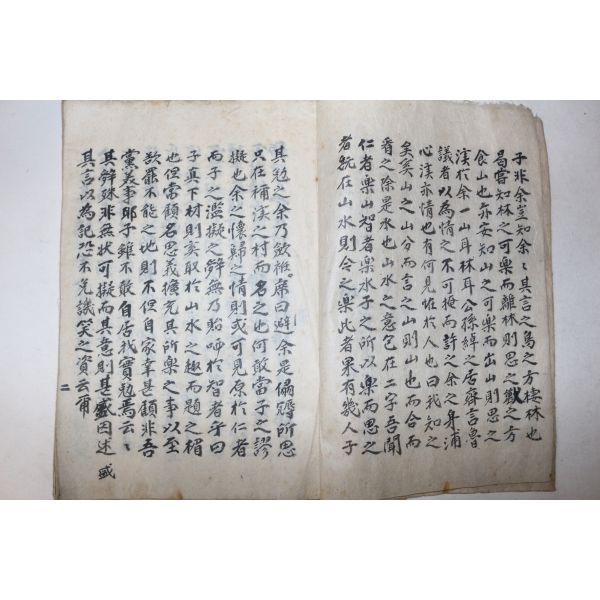 子非余安知余〻其言之鳥之方棲林也
曷嘗知林之可樂而離林則思之獸之方
食山也亦安知山之可樂而出山則思之
溪於余一山耳林耳公孫綽之居齋言魯
議者以為情之不可掩而許之余之身浦
心溪亦情也有何見咜於人也曰我知之
矣奚山之山分而言之山則山也而合而
看之除是水山之意包在二字吾聞
仁者樂山智者樂水子之所以樂而思之
者統在山水則今之樂比者果有幾人子
其勉之余乃斂袵席曰避余是偏嗇所思
只在補溪之村而名之也何敢當子之謬
擬也余之懷歸之情則或可見原於仁者
而子之濫擬之辭無乃貽呼於智者乎曰
子真下材則奚取於山水之趣而題之楣
也但當顧名思義擴充其所樂之事以至
欲罷不能之地則不但自家幸甚顧非吾
黨美事耶子雖不敢自居我實勉焉云〻
其辭殊非無狀可擬而其意則甚盛因述
其言以為記恐不免譏笑之資云爾
盛
二